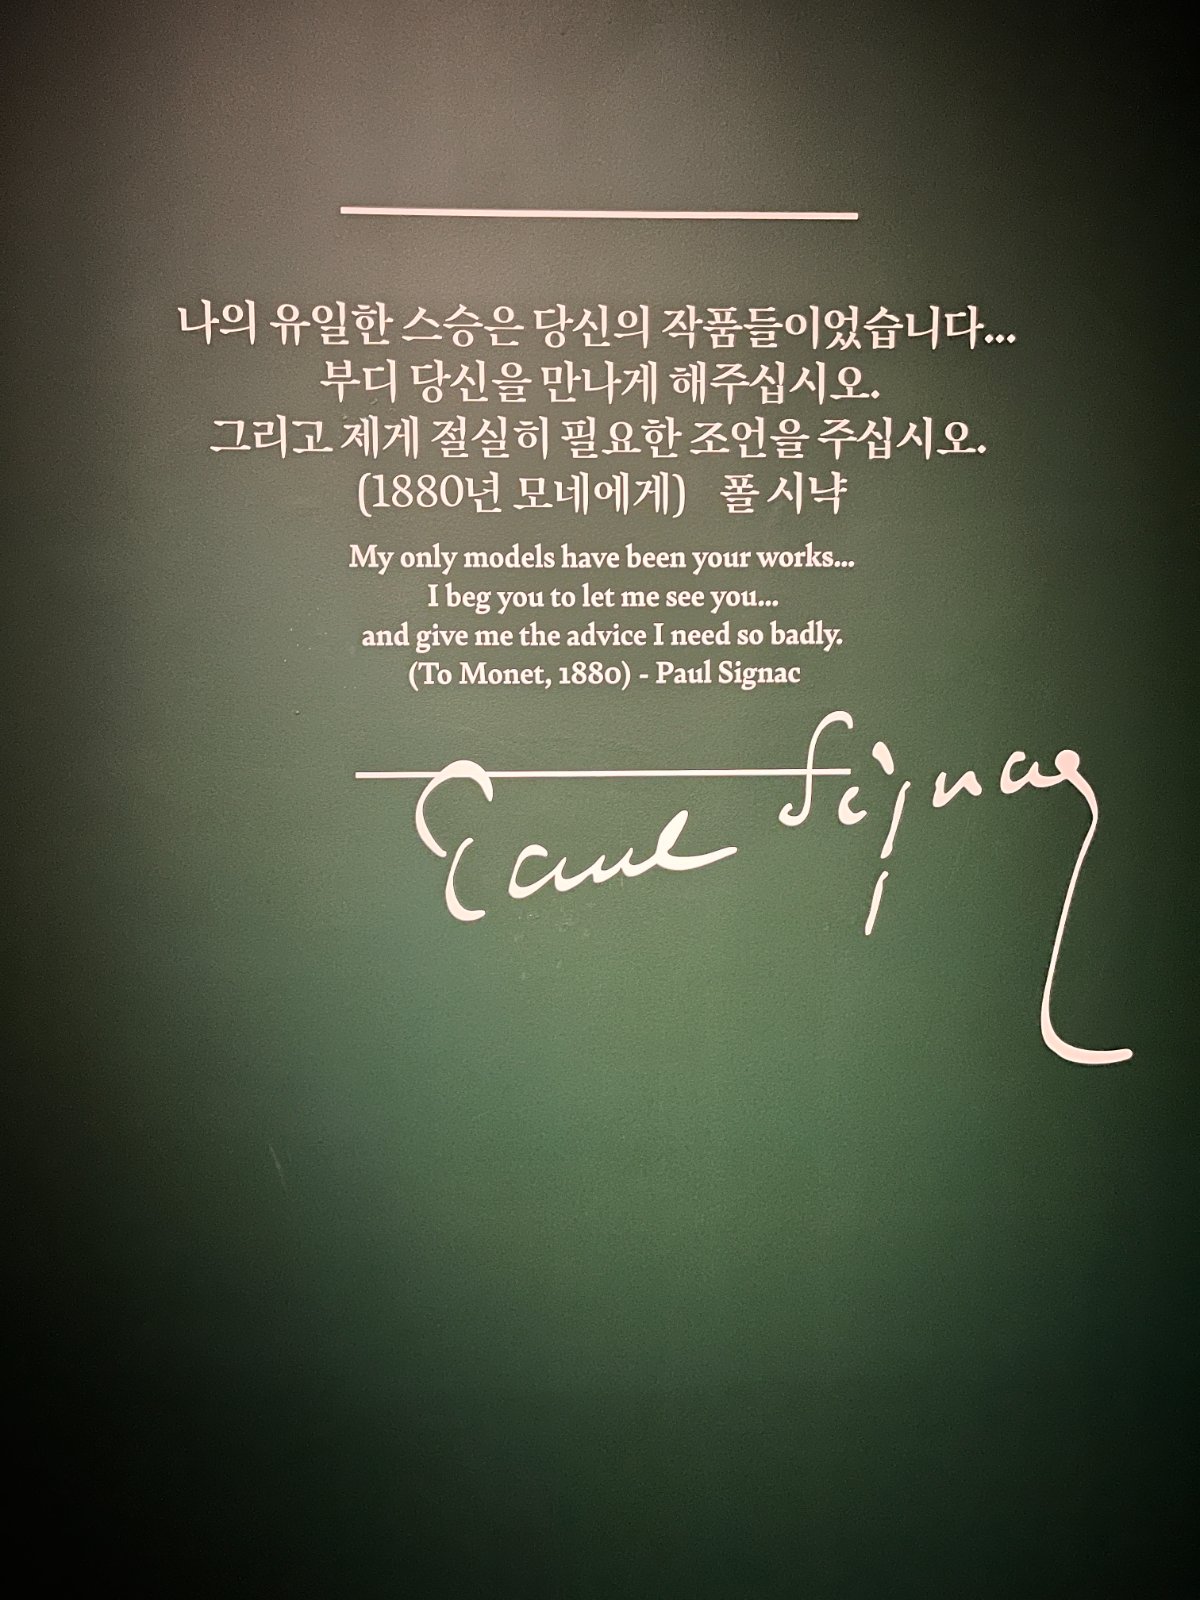 나의 유일한 스승은 당신의 작품들이었습니다...
부디 당신을 만나게 해주십시오.
그리고 제게 절실히 필요한 조언을 주십시오.
(1880년 모네에게) 폴 시냑
My only models have been your works...
I beg you to let me see you...
and give me the advice I need so badly.
(To Monet, 1880) - Paul Signac
Paul Signac